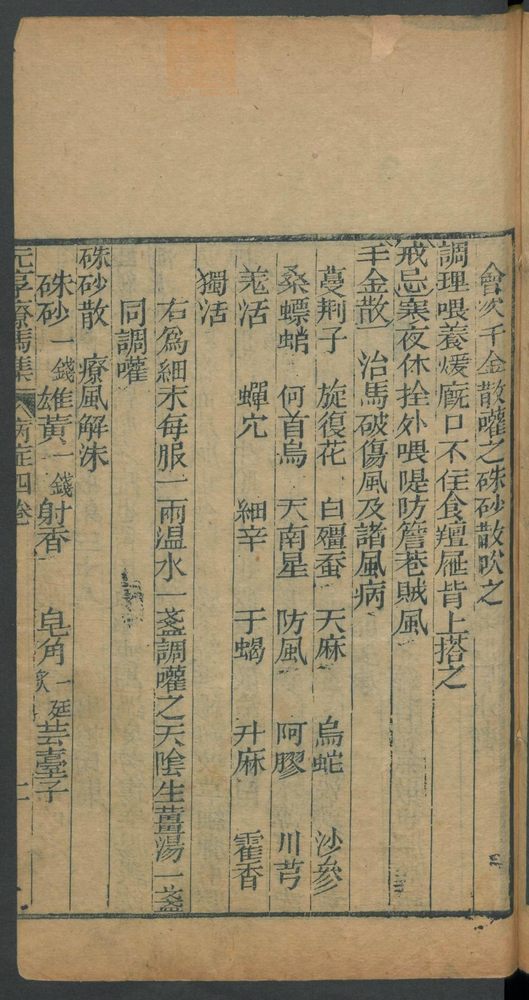 會次千金散嚾之硃砂散吹之
調理喂養煖廐口不住食羶屜背上搭之
戒忌寒夜休拴外喂隄防簷巷賊風
千金散 治馬破傷風及諸風病
蔓荆子 旋復花 白殭蚕 天麻 烏蛇 沙參
桑螵蛸 何首烏 天南星 防風 阿膠 川芎
羗活 蟬宂 細辛 于蝎 升麻 霍香
獨活
右爲細末每服一兩温水一盞調嚾之天陰生薑湯一盞
同調嚾
硃砂散 療風解沫
硃砂一錢 雄黃一錢 射香 皂角一廷 芸臺子
元亨療馬集 病症四卷 二